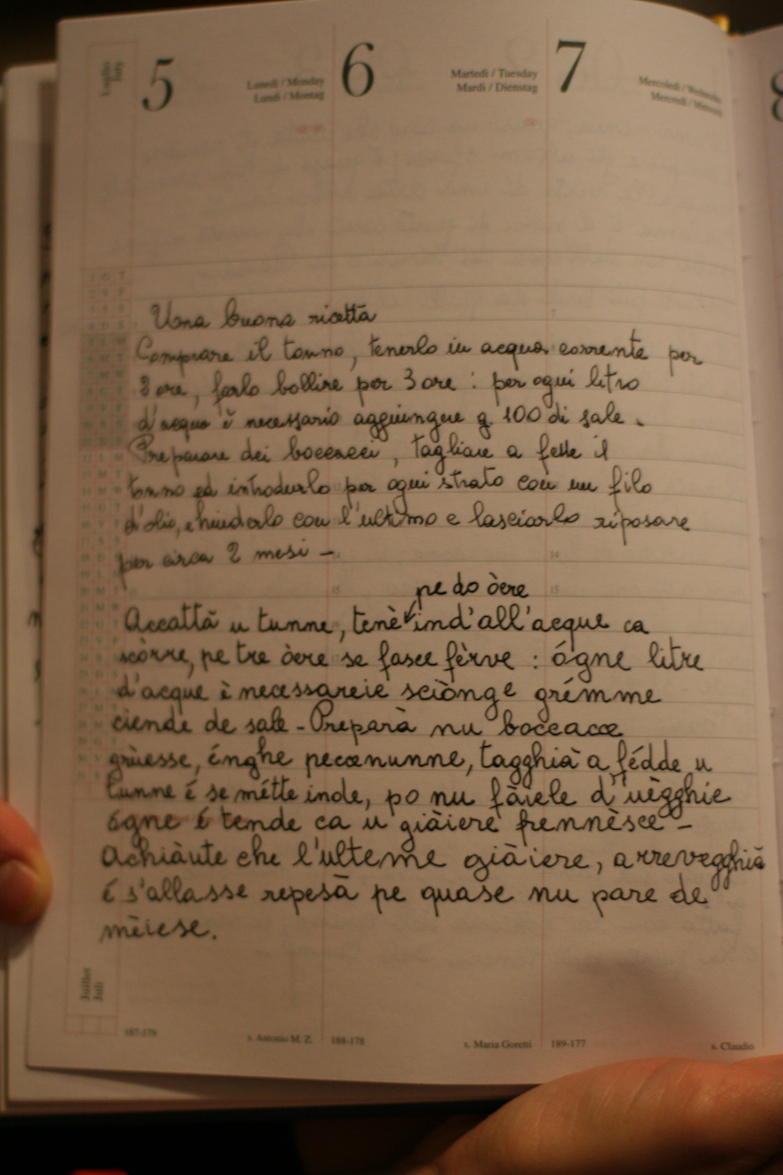 Luglio
July
5
Lunedì / Monday
Lundi / Montag
6
Martedì / Tuesday
Mardi / Dienstag
7
Mercoledì / Wednesday
Mercredi /
8
Una buona ricetta
Comprare il tonno, tenerlo in acqua corrente per
farlo bollire per 3 ore : per ogni litro
d'acqua è necessario aggiungere g 100 di sale.
Preparare dei boccacci, tagliare a fette il
tonno ed introdurlo per ogni strato con un filo
d'olio, chiuderlo con l'ultimo e lasciarlo riposare
per circa 2 mesi -
pe do òere
Accattà u tunne, tenè ind'all'acque ca
scòrre, pe tre òere se fasce fèrve : ógne litre
d'acque è necessareie sciònge grémme
ciende de sale - Preparà nu boccacce
grùesse, énghe peccenunne, tagghià a fédde u
tunne é se métte inde, po nu fàiele d'uègghie
ógne é tende ca u giàiere fennèsce -
Achiàute che l'ulteme giàiere, arrevegghià
é s'allasse repesà pe quase nu pare de
mèiese.
Juillet
Juli
187-179
s. Antonio M. Z.
188-178
s. Maria Goretti
189-177
s. Claudio